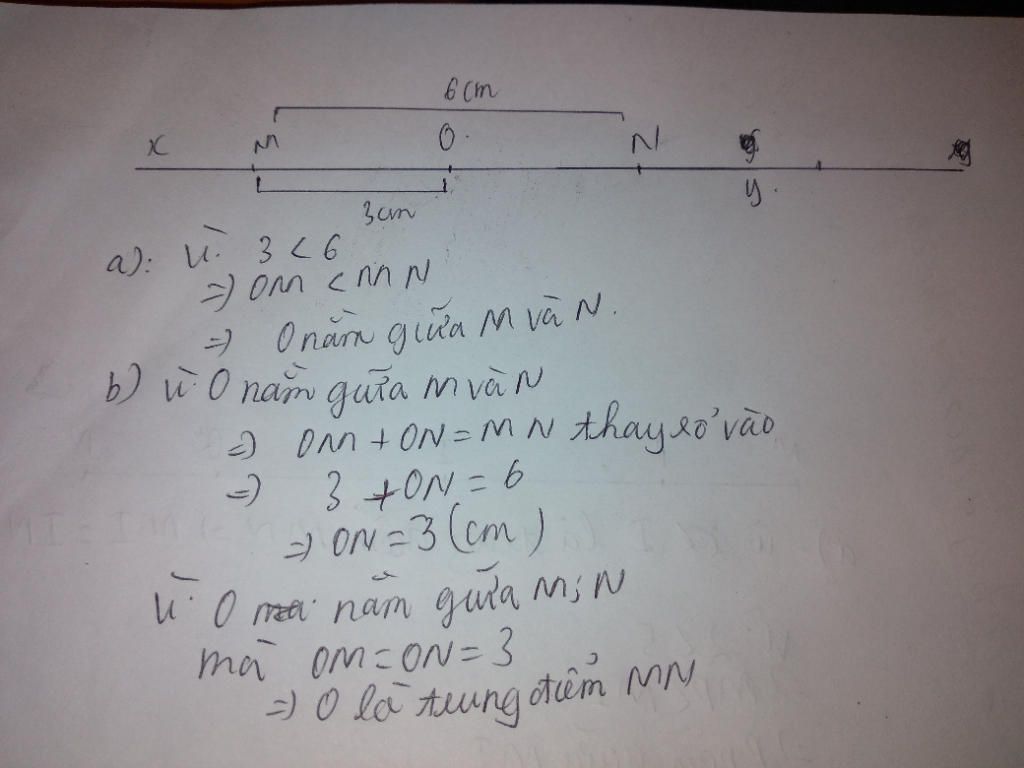 6cm
x M O. N
y.
3cm
a): Vì 3 < 6
=) OM < MN
=) O nằm giữa M và N.
b) Vì O nằm giữa M và N
=) OM + ON = MN thay số vào
=) 3 + ON = 6
=) ON = 3 (cm)
Vì O nằm giữa M; N
mà OM = ON = 3
=) O là trung điểm MN